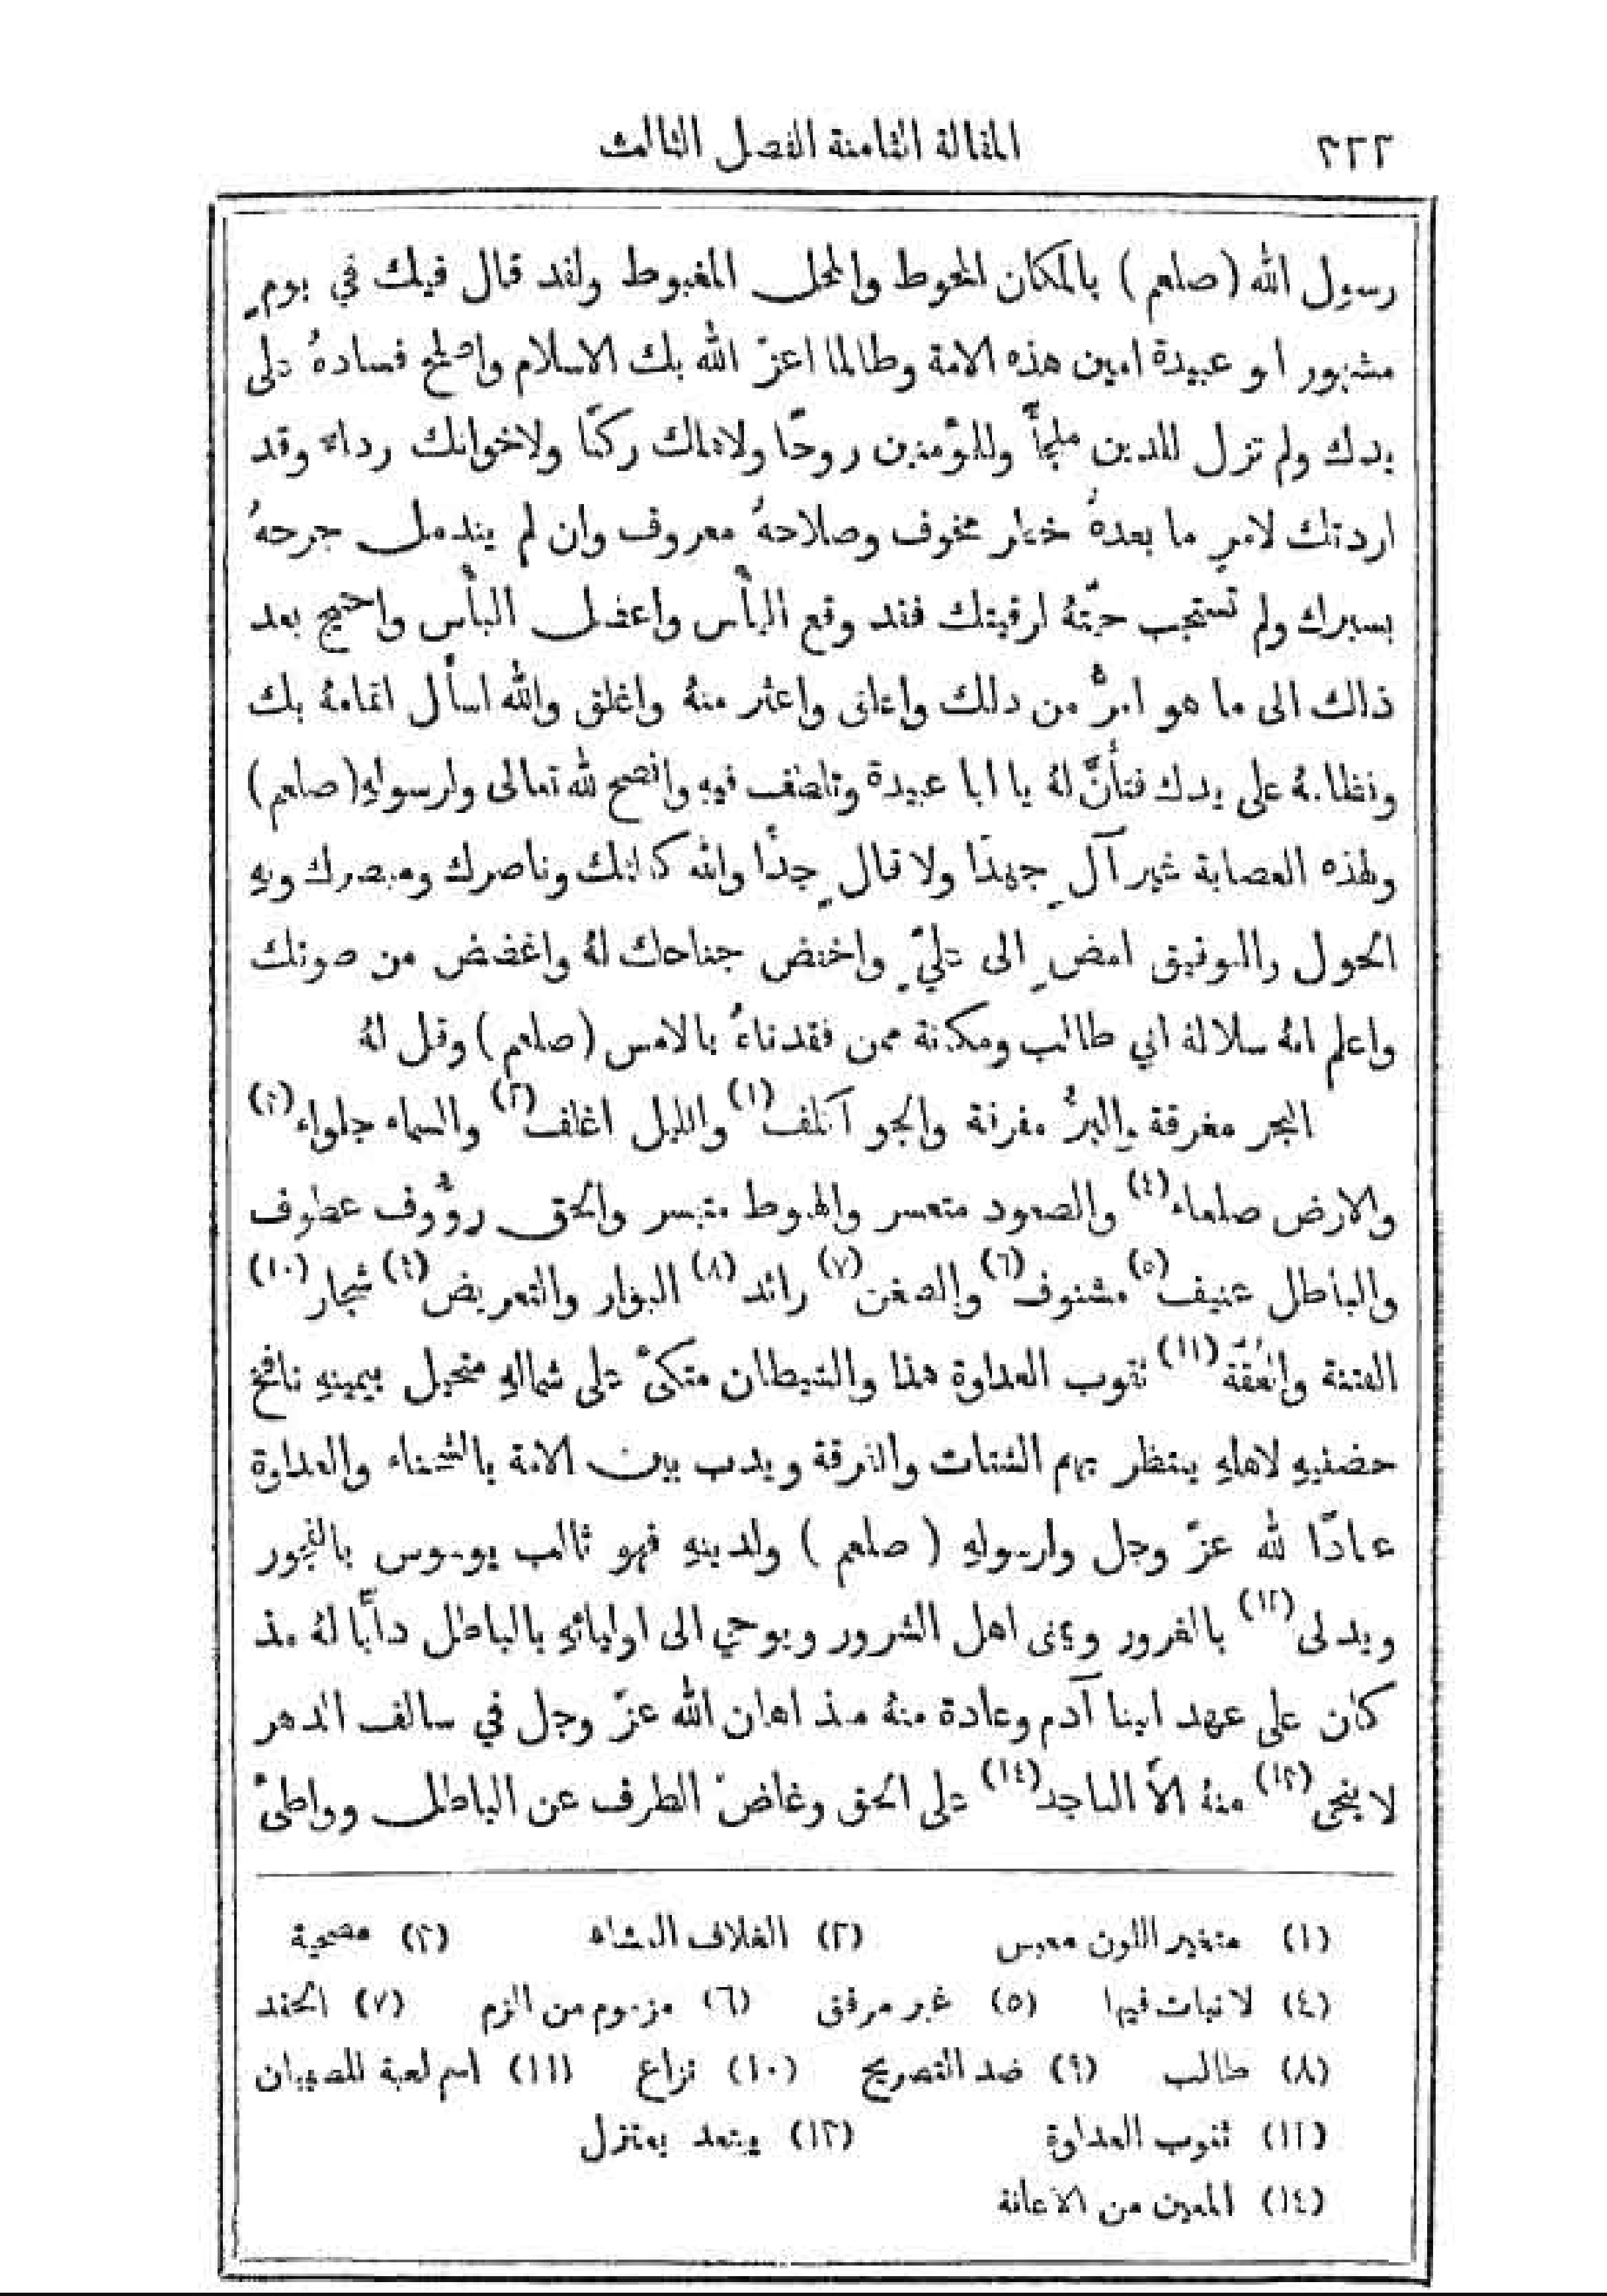 ٢٢٢ المقالة الثامنة الفصل الثالث
رسول الله (صلعم) بالمكان المحوط والمحل المغبوط ولقد قال فيك في يومٍ
مشهور ابو عبيدة امين هذه الامة وطالما اعزّ الله بك الاسلام واصلح فسادهُ على
يدك ولم تزل للدين ملجأً وللمؤمنين روحًا ولاهلك ركنًا ولاخوانك رداء وقد
اردتك لامرٍ ما بعدهُ خطر مخوف وصلاحهُ معروف وان لم يندمل جرحهُ
بسبرك ولم تستجب حيّتهُ لرقيتك فقد وقع اليأس واعضل البأس واحتيج بعد
ذالك الى ما هو امرُّ من ذلك واعلق واعسر منهُ واغلق والله اسأل اتمامهُ بك
ونظامهُ على يدك فتأنَّ لهُ يا ابا عبيدة وتلطف فيهِ وانصح لله تعالى ولرسولهِ (صلعم)
ولهذه العصابة غير آلٍ جهدًا ولا قالٍ جدًا والله كالئك وناصرك ومبصرك وبهِ
الحول والتوفيق امضِ الى عليٍّ واخفض جناحك لهُ واغضض من صوتك
واعلم انهُ سلالة ابي طالب ومكانة ممن فقدناهُ بالامس (صلعم) وقل لهُ
البحر مغرقة والبرُّ مفرقة والجو اكلف(١) والليل اغلف(٢) والسماء جلواء(٣)
والارض صلعاء(٤) والصعود متعسر والهبوط متيسر والحق رؤُوف عطوف
والباطل عنيف(٥) مشنوف(٦) والضغن(٧) رائد(٨) البوار والتعريض(٩) شجار(١٠)
الفتنة والقُقَّة(١١) ثقوب العداوة هذا والشيطان متكئ على شمالهِ متحيل بيمينهِ نافخ
حضنيهِ لاهلهِ ينتظر بهم الشتات والفرقة ويدب بين الامة بالشحناء والعداوة
عنادًا لله عزّ وجل ولرسولهِ (صلعم) ولدينهِ فهو ثالب يوسوس بالفجور
ويدلى(١٢) بالغرور ويمنى اهل الشرور ويوحي الى اوليائهِ بالباطل دأبًا لهُ مذ
كان على عهد ابينا آدم وعادة منهُ منذ اهان الله عزّ وجل في سالف الدهر
لا ينجى(١٣) منهُ الاّ الناجد(١٤) على الحق وغاضّ الطرف عن الباطل وواطئ
(١) متغير اللون معبس (٢) الغلاف الغشاء (٣) مصحية
(٤) لا نبات فيها (٥) غير مرفق (٦) مزموم من الزم (٧) الحقد
(٨) طالب (٩) ضد التصريح (١٠) نزاع (١١) اسم لعبة للصبيان
(١٢) ثقوب العداوة (١٣) يبتعد يعتزل
(١٤) المعين من الاعانة